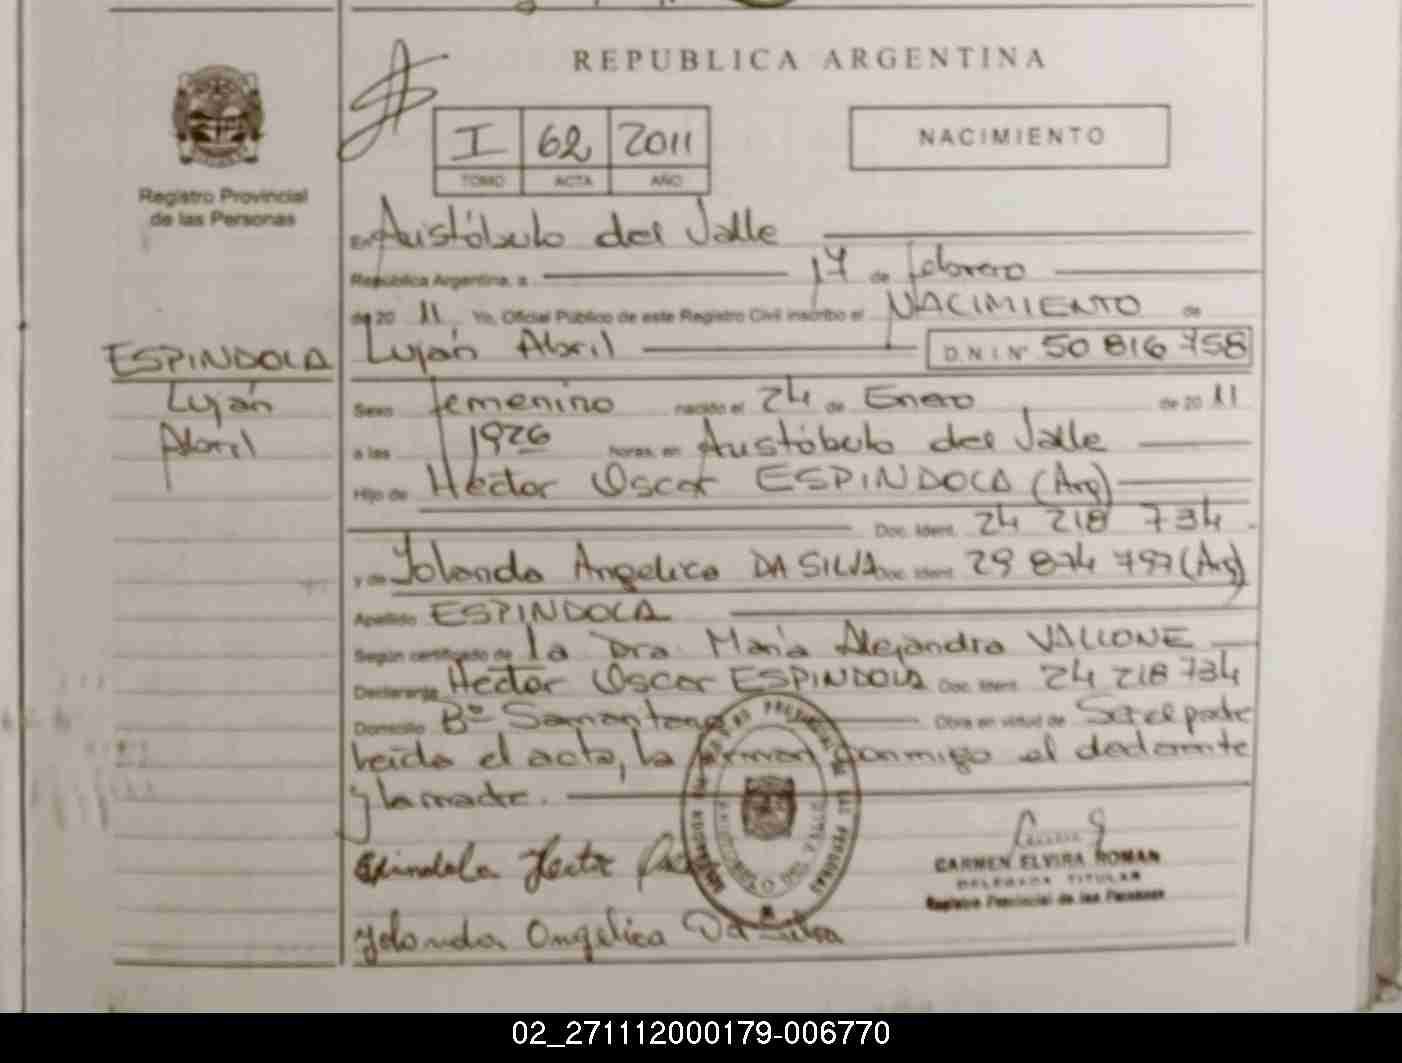 REPUBLICA ARGENTINA
I 62 2011
TOMO ACTA AÑO
NACIMIENTO
Registro Provincial
de las Personas
En Aristóbulo del Valle
República Argentina, a 17 de febrero
de 20 11 Yo, Oficial Público de este Registro Civil inscribo el NACIMIENTO de
Luján Abril D N I Nº 50 816 758
ESPINDOLA
Luján
Abril
Sexo femenino nacido el 24 de Enero de 20 11
a las 1926 horas, en Aristóbulo del Valle
Hijo de Héctor Oscar ESPINDOLA (Arg)
Doc. Ident. 24 218 734
y de Yolanda Angelica DA SILVA Doc. Ident 29 874 797 (Arg)
Apellido ESPINDOLA
Según certificado de la Dra. María Alejandra VALLONE
Declarante Héctor Oscar ESPINDOLA Doc. Ident. 24 218 734
Domicilio Bº Obra en virtud de Ser el padre
Leída el acta, la firman conmigo el declarante
y la madre.
Espindola Hector
Yolanda Angelica Da Silva
CARMEN ELVIRA ROMAN
DELEGADA TITULAR
Registro Provincial de las Personas
02_271112000179-006770